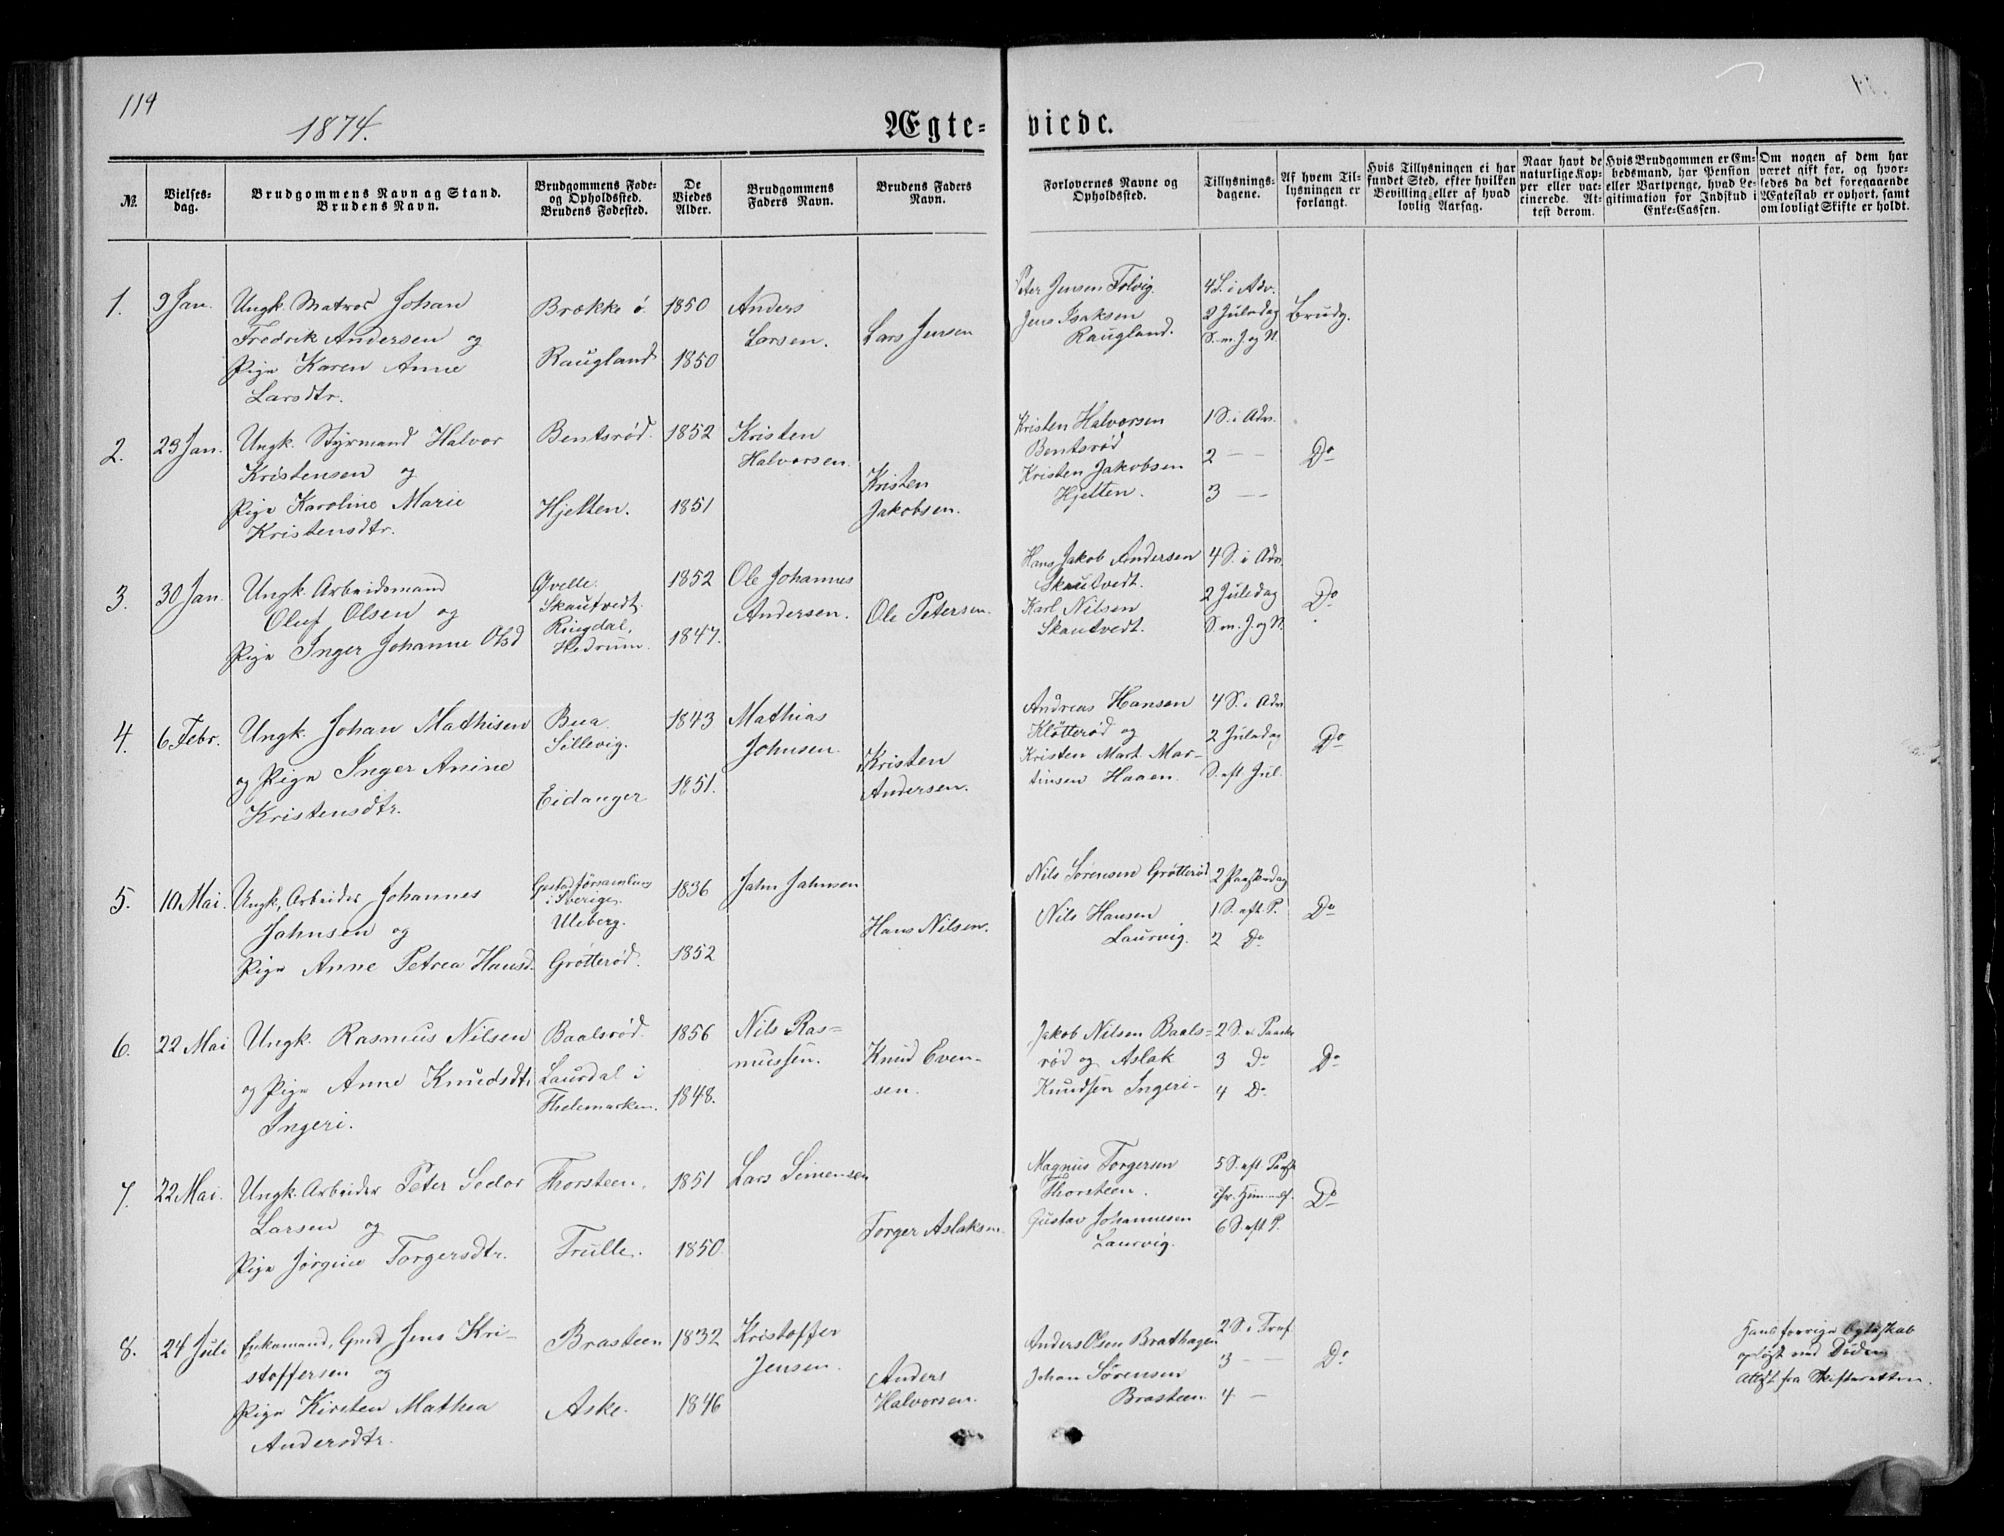 119
1874.
Ægte-
viede.
№
Vielses-
dag.
Brudgommens Navn ag Stand.
Brudens Navn.
Brudgommens Føde-
og Opholdssted.
Brudens Fødested.
De
Viedes
Alder.
Brudgommens
Faders Navn.
Brudens Faders
Navn.
Forlovernes Navne og
Opholdssted.
Tillysnings-
dagene.
Af hvem Til-
lysningen er
forlangt.
Hvis Tillysningen ei har
fundet Sted, efter hvilken
Bevilling eller af hvad
lovlig Aarsag.
Naar havt de
naturlige Kop-
per eller vac-
cinerede. At-
test derom.
Hvis Brudgommen er Em-
bedsmand, har Pension
eller Vartpenge, hvad Le-
gitimation for Indskud i
Enke-Cassen.
Om nogen af dem har
været gift før, og hvor-
ledes da det foregaaende
Ægteskab er ophørt, samt
om lovligt Skifte er holdt.
1.
9 Jan.
Ungk. Matros Johan
Fredrik Andersen og
Pige Karen Anne
Larsdtr.
Brække ø.
Raugland
1850
1850
Anders
Larsen.
Lars Jensen
Peter Jensen Tolvig.
Jens Isaksen
Raugland.
4 S. i Adv.
2 Juledag
S. m. J. og N.
Brudg.
2.
23 Jan.
Ungk. Styrmand Halvor
Kristensen og
Pige Karoline Marie
Kristensdtr.
Bentsrød.
Hjelten.
1852
1851
Kristen
Halvorsen.
Kristen
Jakobsen.
Kristen Halvorsen
Bentsrød
Kristen Jakobsen
Hjelten.
1 S. i Adv.
2 — —
3 — —
Do
3.
30 Jan.
Ungk. Arbeidsmand
Oluf Olsen og
Pige Inger Johanne Olsd
Qvelle.
Skautvedt.
Ringdal,
Hedrum.
1852
1847.
Ole Johannes
Andersen.
Ole Petersen.
Hans Jakob Andersen
Skautvedt.
Karl Nilsen
Skautvedt.
4 S. i Adv.
2 Juledag
S. m. J. og N.
Do
4.
6 Febr.
Ungk. Johan Mathisen
og Pige Inger Anine
Kristensdtr.
Bua
Sillevig.
Eidanger
1843
1851.
Mathias
Johnsen.
Kristen
Andersen.
Andreas Hansen
Kløtterød og
Kristen Mart. Mar-
tinsen Haaen.
4 S. i Adv
2 Juledag
S. eft Jul.
Do
5.
10 Mai.
Ungk, Arbeider Johannes
Jahnsen og
Pige Anne Petrea Hansd.
i Sverige
Uleberg.
Grøtterød.
1836
1852
Jahn Jahnsen
Hans Nilsen.
Nils Sørensen Grøtterød
Nils Hansen
Laurvig.
2 Paaskedag
1 S. eft. P.
2 Do
Do
6.
22 Mai
Ungk. Rasmus Nilsen
og Pige Anne Knudsdtr.
Ingeri.
Baalsrød.
Laurdal i
Thelemarken.
1856
1848.
Nils Ras-
mussen.
Knud Even-
sen.
Jakob Nilsen Baals-
rød og Aslak
Knudsen Ingeri-
2 S. e. Paaske
3 Do
4 Do
Do
7.
22 Mai.
Ungk. Arbeider Peter Sedor
Larsen og
Pige Jørgine Torgersdtr.
Thorsteen.
Trulle.
1851
1850.
Lars Simensen
Torger Aslaksen.
Magnus Torgersen
Thorsteen.
Gustav Johannesen
Laurvig.
5 S. eft Paask
Kr. Himmelf.
6 S. eft P.
Do
8.
24 Juli
Enkemand, Gmd Jens Kri-
stoffersen og
Pige Kirsten Mathea
Andersdtr.
Brasteen
Aske.
1832
1846
Kristoffer
Jensen.
Anders
Halvorsen.
Anders Olsen Brathagen
Johan Sørensen
Brasteen
2 S. i Tref
3 — —
4 —
Do
Hans forrige Egteskab
opløst ved Døden
Attest fra Skifteretten.